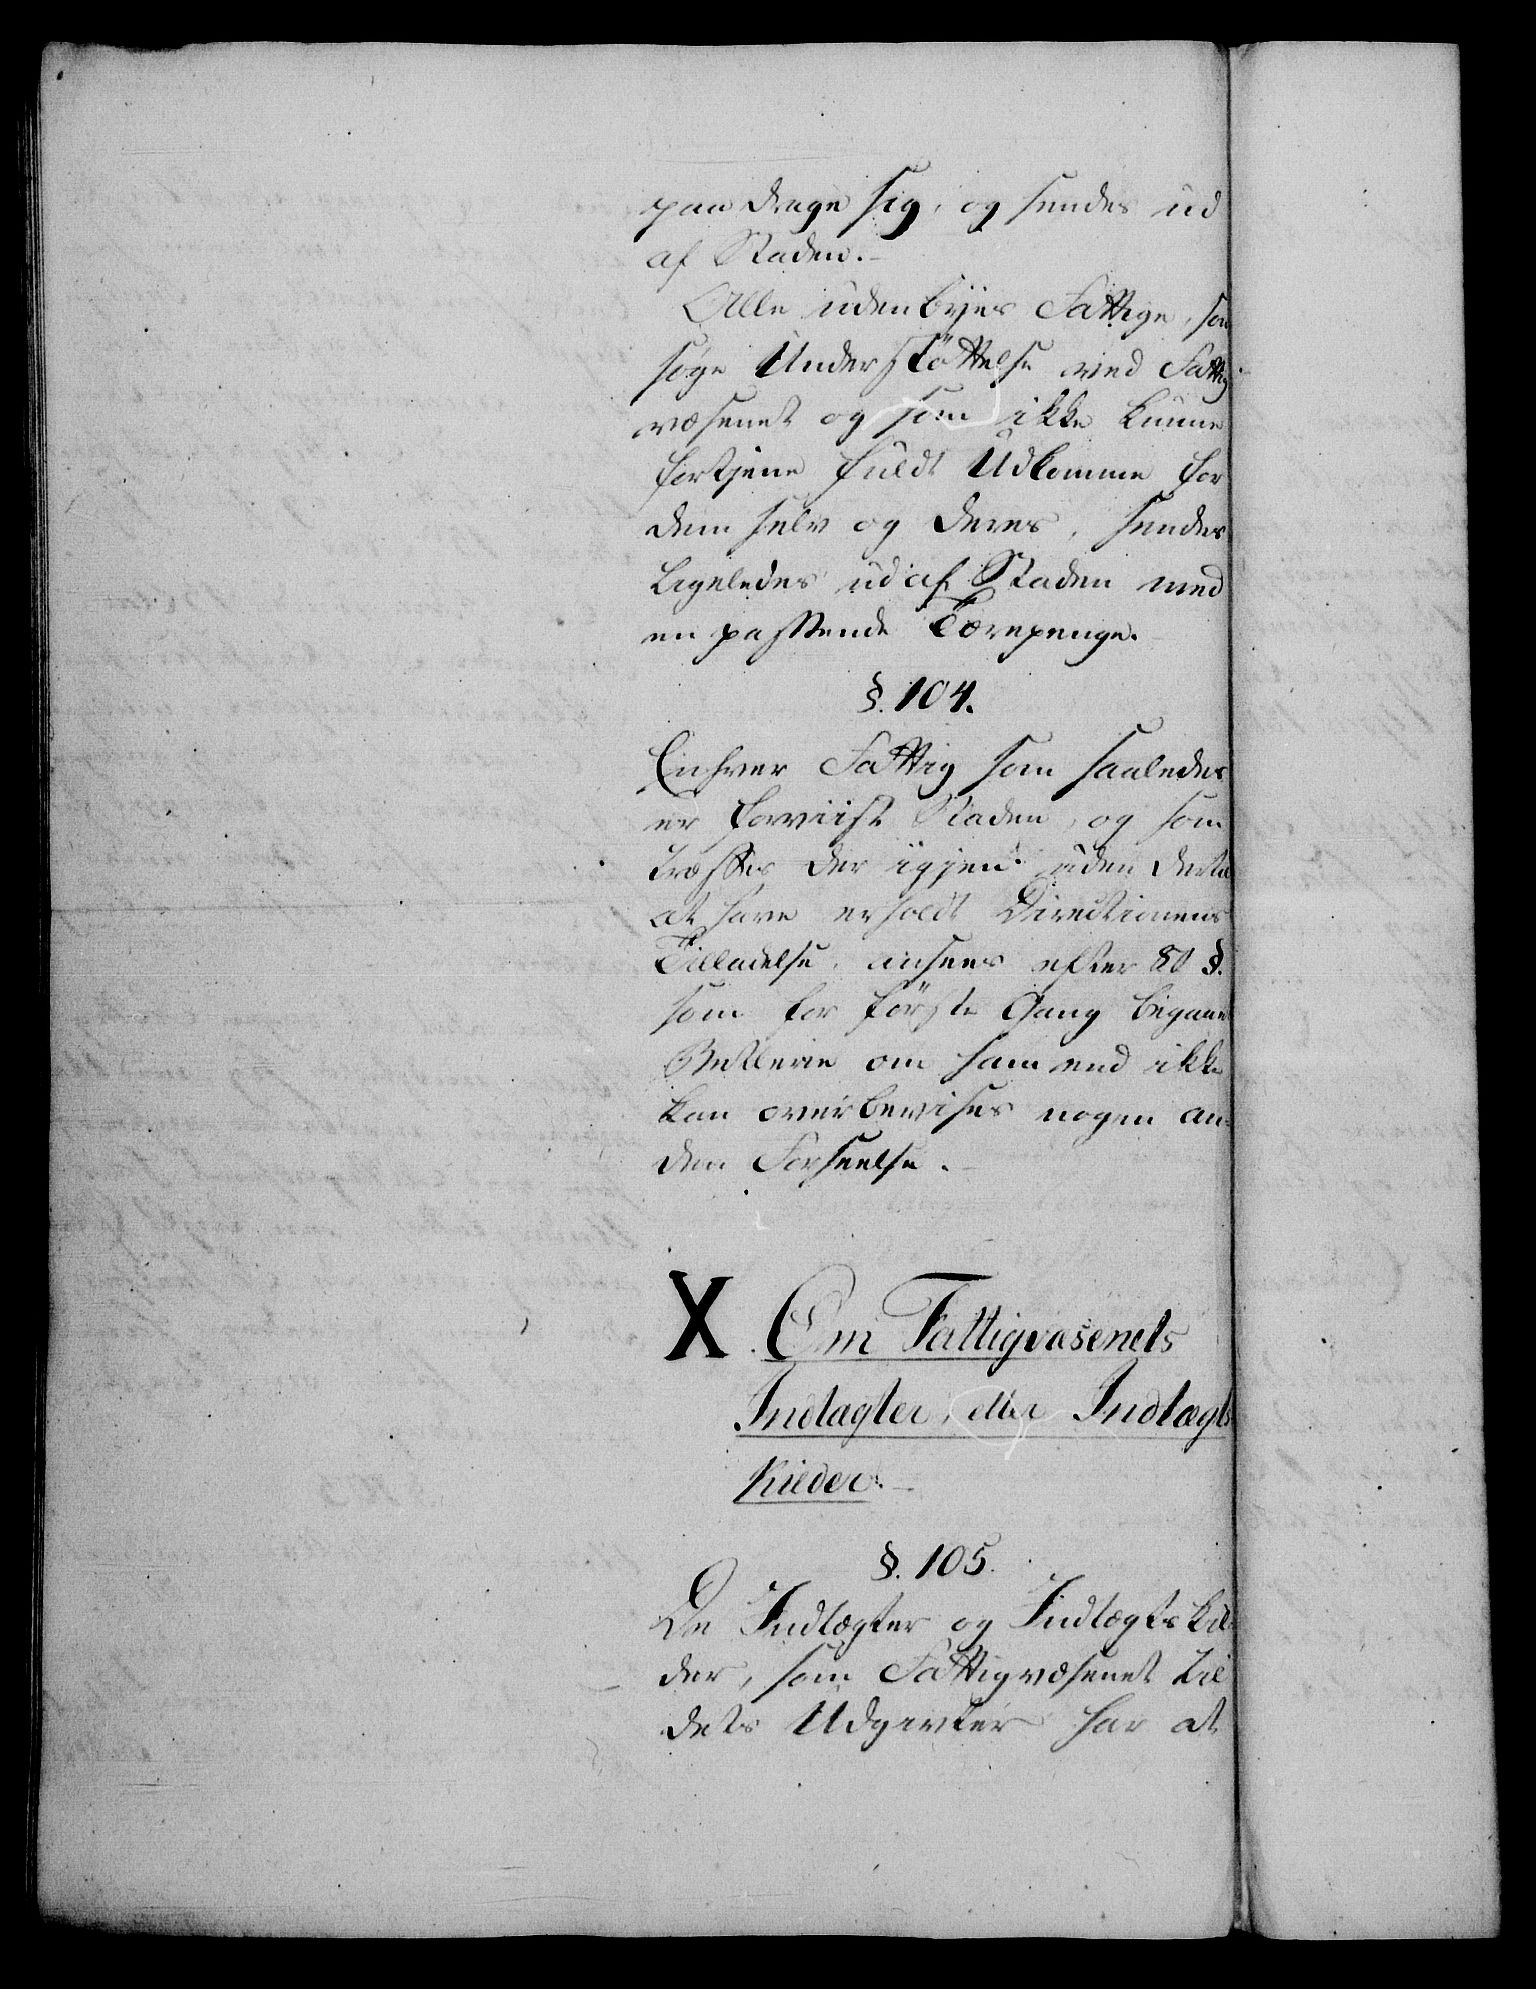 paadrage sig, og sendes ud
af Staden.-
Alle udenbyes Fattige, som
søge Understöttelse ved Fattig
væsenet og som ikke kunne
fortjene fuldt Udkomme for
dem selv og Deres, sendes
ligeledes ud af Staden med
en passende Tærepenge.
§. 104.
Enhver Fattig som saaledes
er forviist Staden, og som
træffes der igjen uden dertil
at have erholdt Directionens
Tilladelse, ansees efter 80 §.
som for förste Gang begaaet
Betlerie om ham end ikke
kan overbevises nogen an=
den Forseelse.-
X. Om Fattigvæsenets
Indtægter, eller Indtægts
Kilder.-
§. 105.
De Indtægter og Indtægtskil
der, som Fattigvæsenet til
dets Udgivter har at